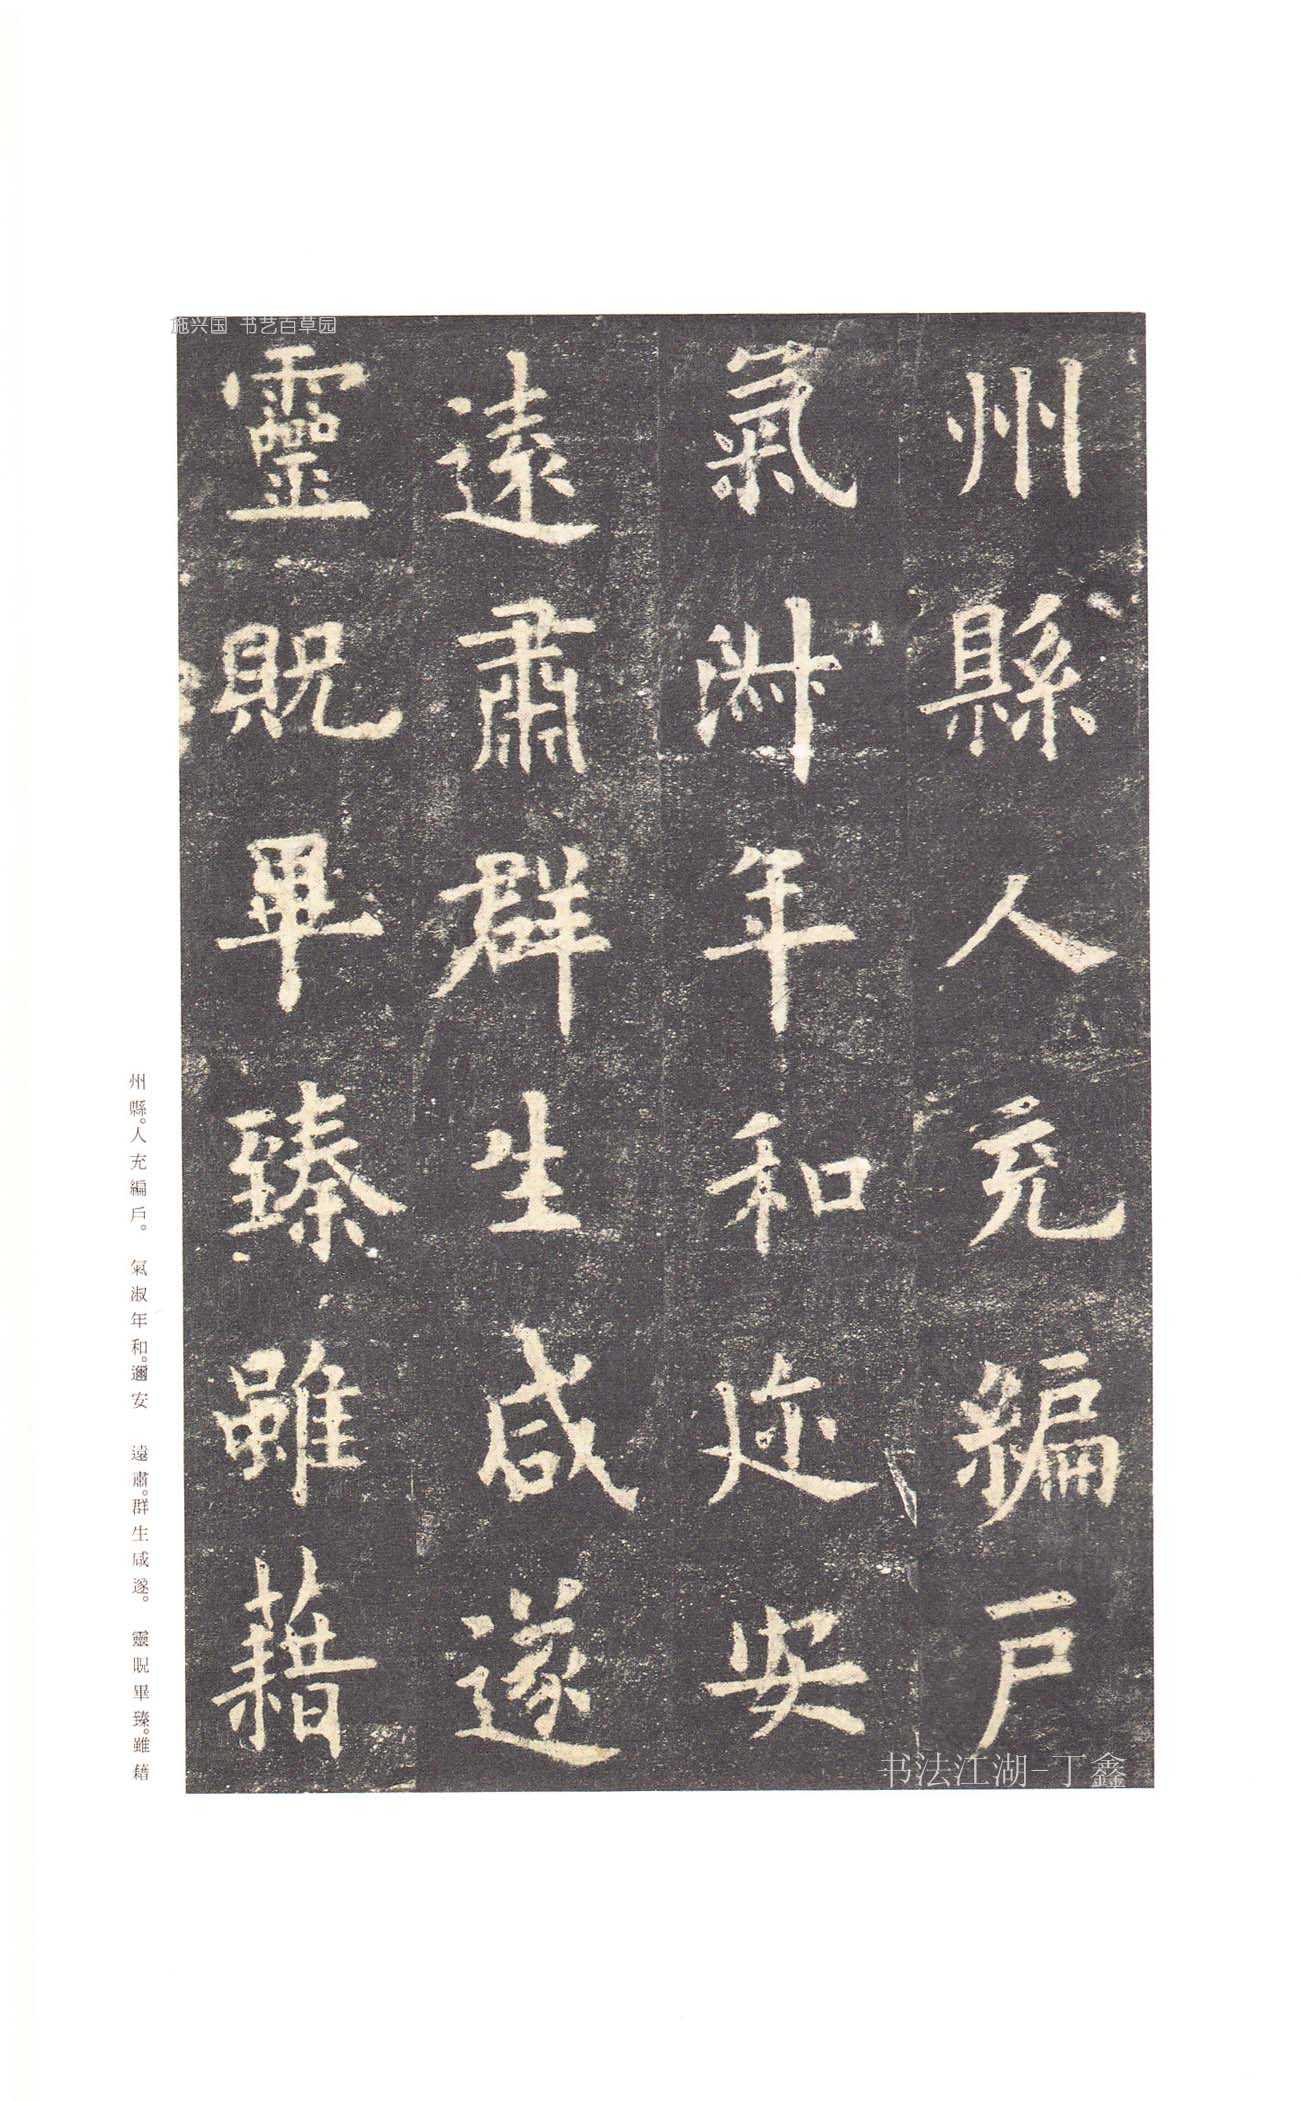 施兴国 书艺百草园
州縣人充編戶
氣淑年和迩安
遠肅群生咸遂
靈貺畢臻雖藉
州縣。人充編戶。 氣淑年和。邇安 遠肅。群生咸遂。 靈貺畢臻。雖藉
书法江湖-丁鑫